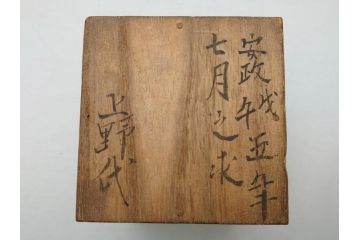 安政戊午五年
七月之求
上野代